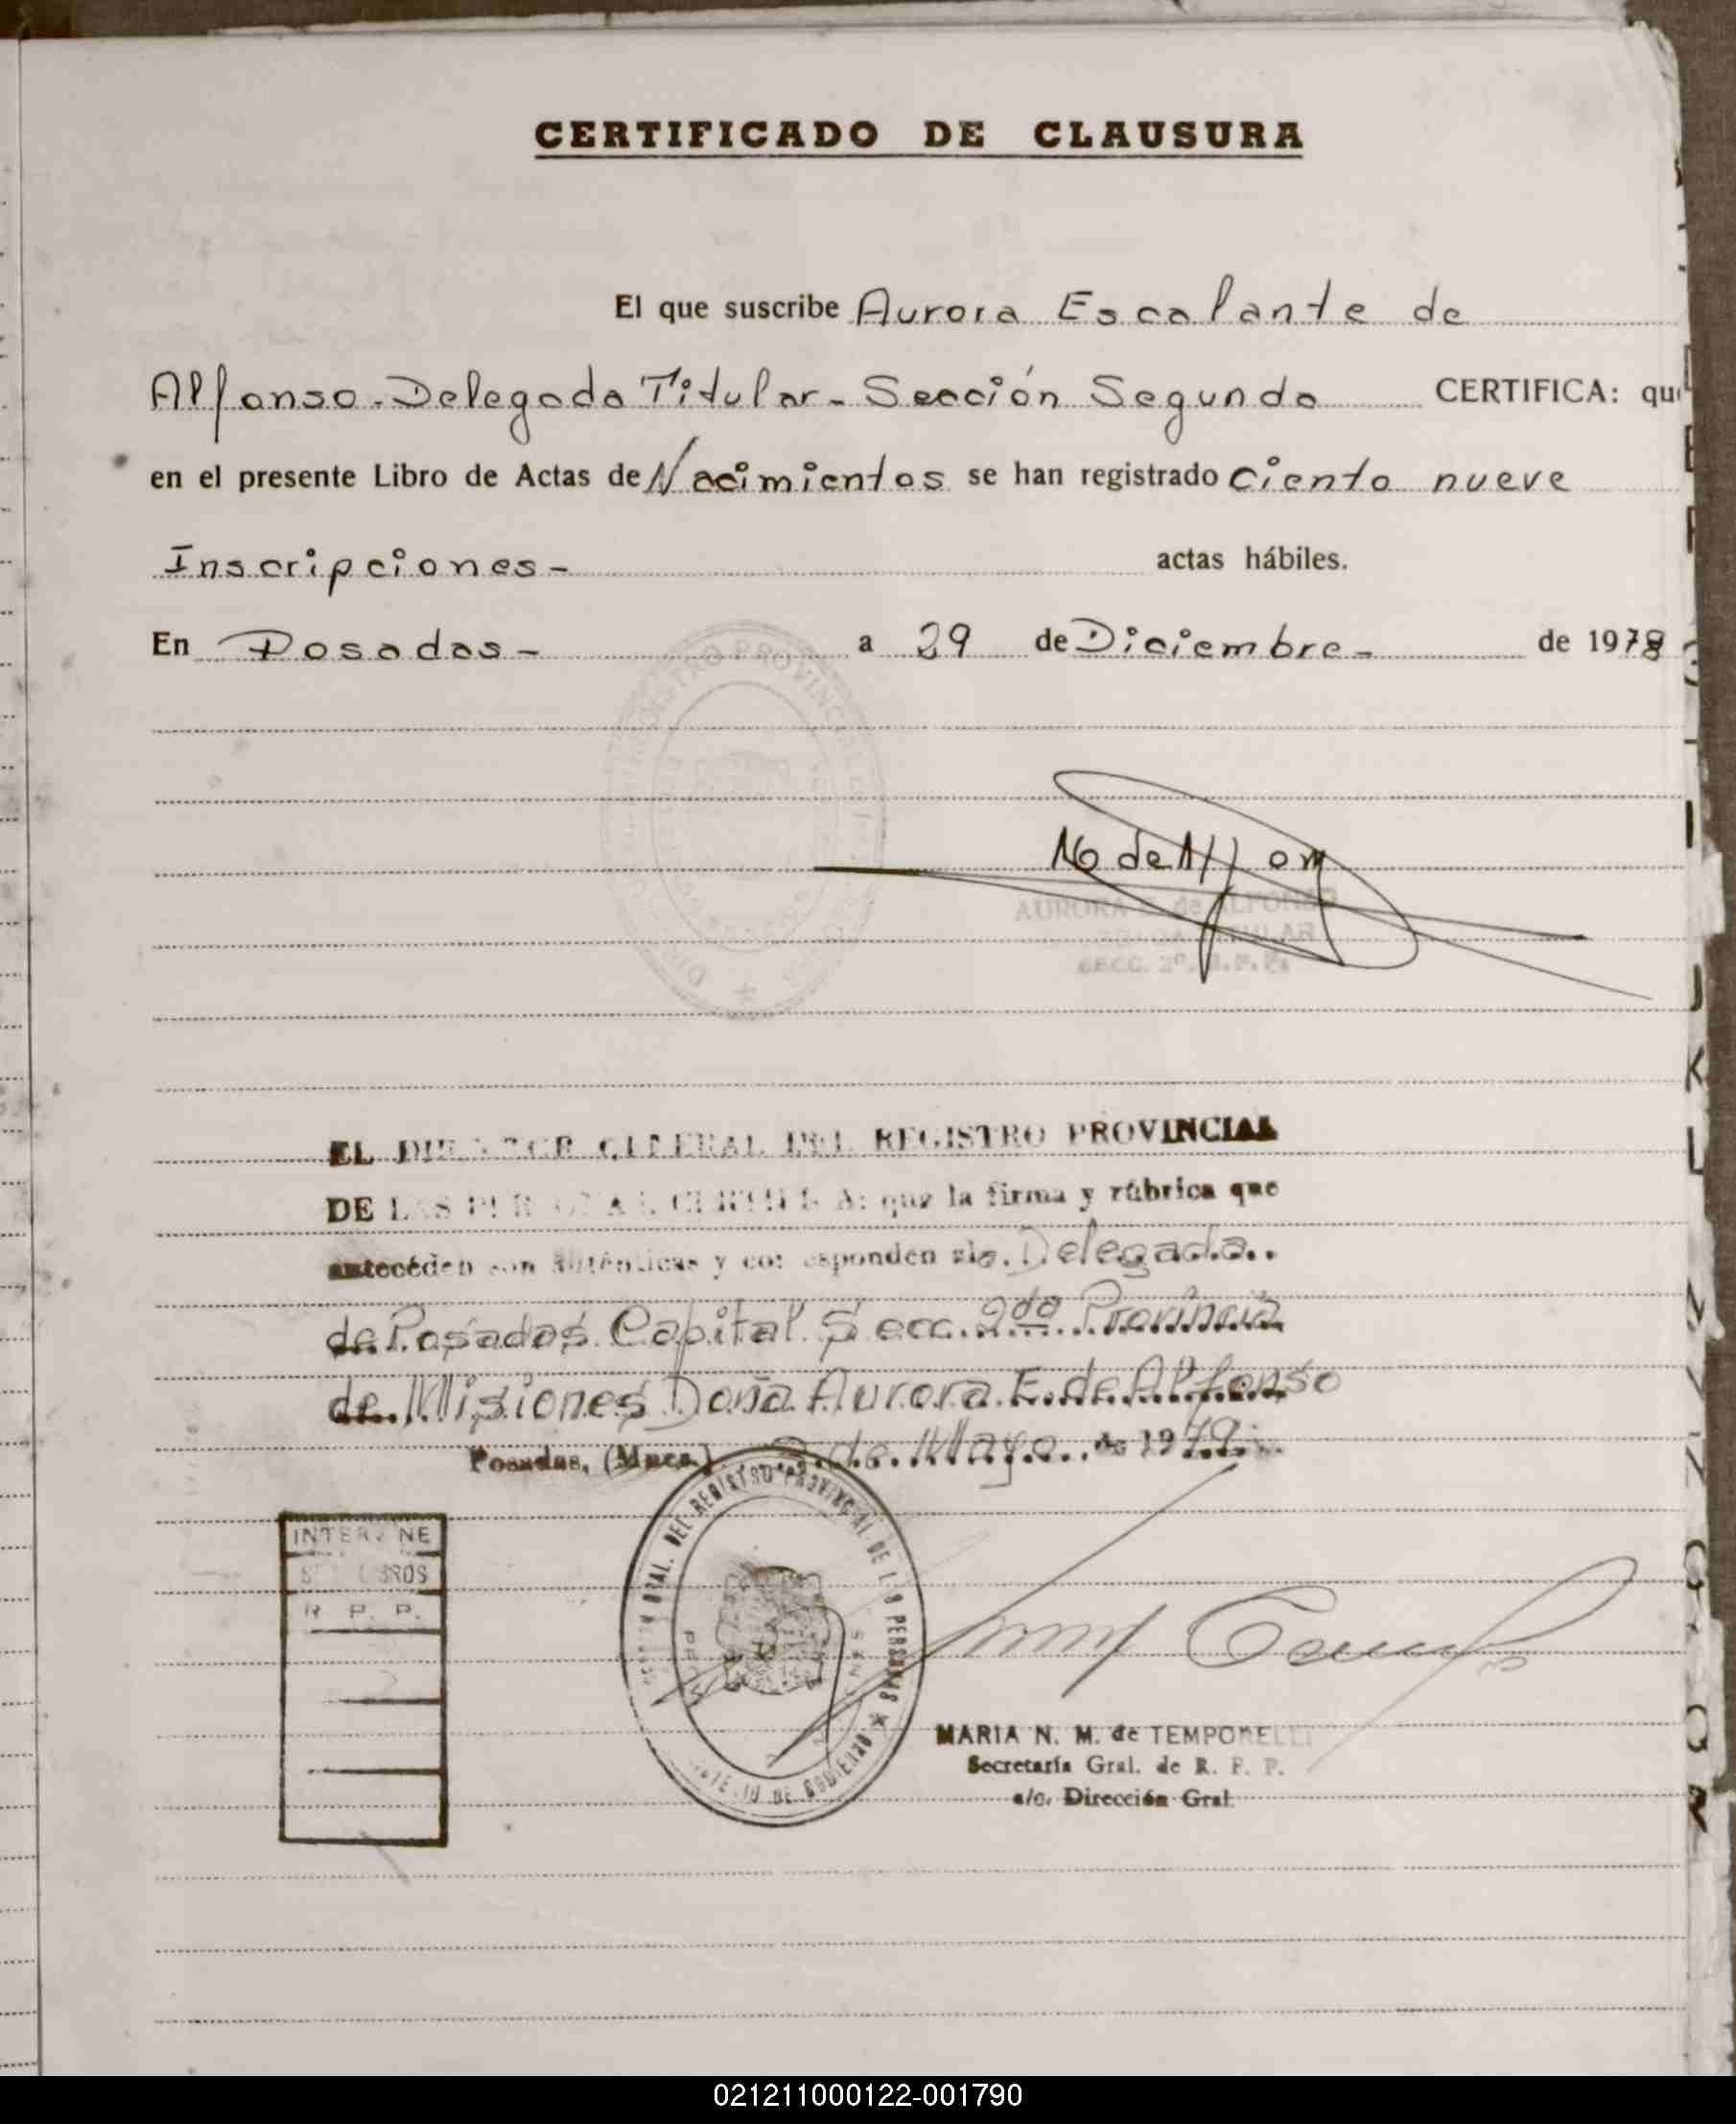 CERTIFICADO DE CLAUSURA
El que suscribe Aurora Escalante de
Alfonso-Delegada Titular-Sección Segunda CERTIFICA: que
en el presente Libro de Actas de Nacimientos se han registrado Ciento nueve
Inscripciones- actas hábiles.
En Posadas- a 29 de Diciembre- de 1978
AURORA E. de ALFONSO
TITULAR
SECC. 2ª. R. P. P.
EL DIRECTOR GENERAL DEL REGISTRO PROVINCIAL
DE LAS PERSONAS CERTIFICA: que la firma y rúbrica que
anteceden son auténticas y corresponden a la Delegada
de Posadas Capital Secc. 2da Provincia
de Misiones Doña Aurora E. de Alfonso
Posadas, (Mnes.) de Mayo de 1979
INTERVINE
SEC. LIBROS
R. P. P.
GRAL. DEL REGISTRO PROVINCIAL DE LAS PERSONAS
MINISTERIO DE GOBIERNO
MARIA N. M. de TEMPORELLI
Secretaría Gral. de R. P. P.
a/c. Dirección Gral.
021211000122-001790